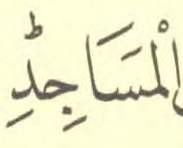 الْمَسَاجِدِؕ